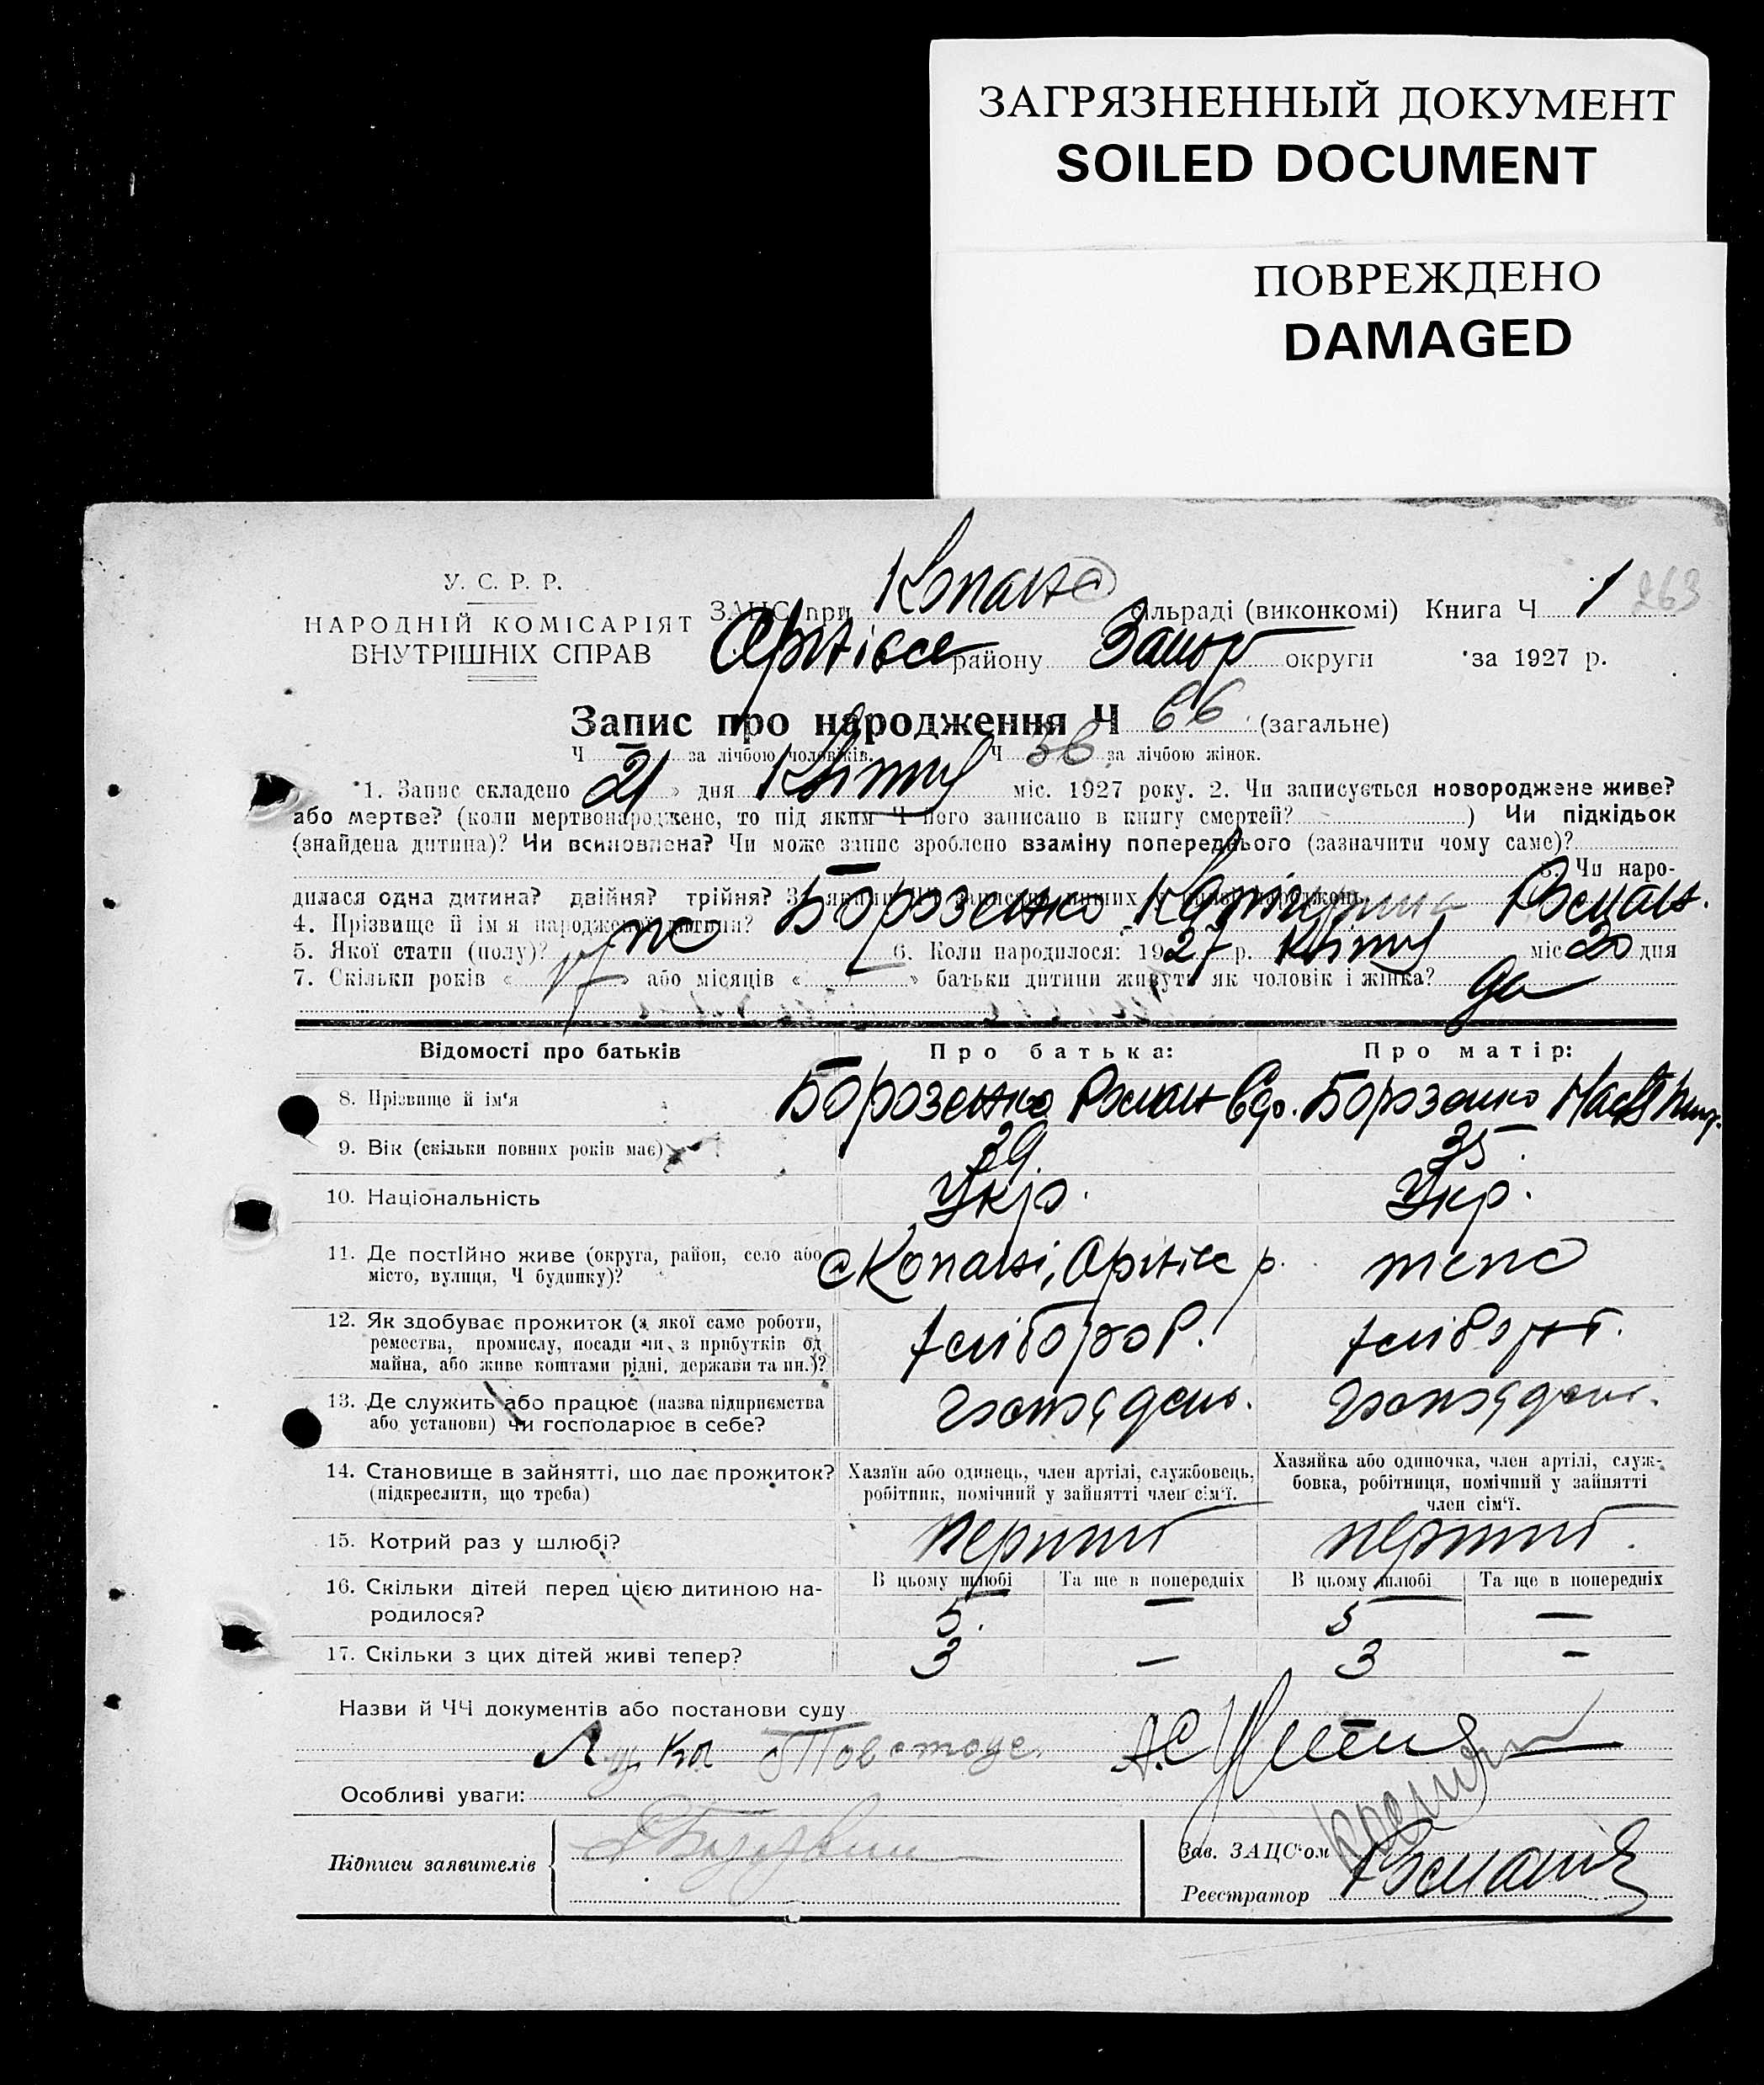 ЗАГРЯЗНЕННЫЙ ДОКУМЕНТ
SOILED DOCUMENT
ПОВРЕЖДЕНО
DAMAGED
У. С. Р. Р.
НАРОДНІЙ КОМІСАРІЯТ
ВНУТРІШНІХ СПРАВ
ЗАЦС при Копанс сільраді (виконкомі) Книга Ч 1 263
Оріхівсс району Запор округи за 1927 р.
Запис про народження Ч 66 (загальне)
Ч за лічбою чоловіків. Ч 36 за лічбою жінок.
1. Запис складено « 21 » дня Квітня міс. 1927 року. 2. Чи записується новороджене живе?
або мертве? (коли мертвонароджене, то під яким Ч його записано в книгу смертей? ) Чи підкідьок
(знайдена дитина)? Чи всиновлена? Чи може запис зроблено взаміну попереднього (зазначити чому саме)?
3. Чи наро-
дилася одна дитина? двійня? трійня? За якими ЧЧ записано инших у цьому народжень
4. Прізвище й ім'я народженої дитини? Борозенко Катерина Роман.
5. Якої стати (полу)? 6. Коли народилося: 1927 р. Квітня міс 20 дня
7. Скільки років « » або місяців « » батьки дитини живуть як чоловік і жінка? да
Відомості про батьків Про батька: Про матір:
8. Прізвище й ім'я Борозенко Роман Фед. Борозенко Наст
9. Вік (скільки повних років має) 39. 35.
10. Національність Укр. Укр.
11. Де постійно живе (округа, район, село або
місто, вулиця, Ч будинку)? с Копані, Оріхів р. теж
12. Як здобуває прожиток (з якої саме роботи,
ремества, промислу, посади чи з прибутків од
майна, або живе коштами рідні, держави та ин.)? хлібороб. хлібороб.
13. Де служить або працює (назва підприємства
або установи) чи господарює в себе? господарю. господарю.
14. Становище в зайнятті, що дає прожиток?
(підкреслити, що треба)
Хазяїн або одинець, член артілі, службовець,
робітник, помічний у зайнятті член сім'ї.
Хазяйка або одиночка, член артілі, служ-
бовка, робітниця, помічний у зайнятті
член сім'ї.
15. Котрий раз у шлюбі? перший перший.
16. Скільки дітей перед цією дитиною на-
родилося?
В цьому шлюбі Та ще в попередніх В цьому шлюбі Та ще в попередніх
5. — 5 —
17. Скільки з цих дітей живі тепер? 3 — 3 -
Назви й ЧЧ документів або постанови суду
Особливі уваги:
Підписи заявителів
Зав. ЗАЦС'ом
Реєстратор